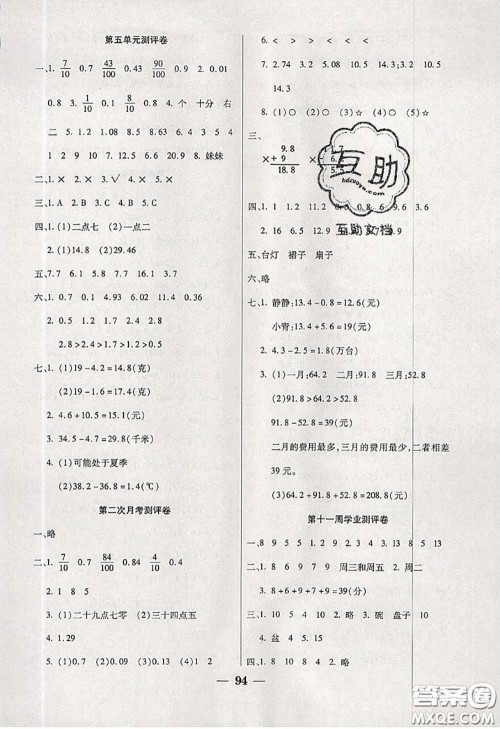 第五单元测评卷
一、1. 7/10 0.7 43/100 0.43 90/100 0.9 2. 0.01
0.8 3. 1/10 8/10 0.1 0.8 4. 个 十分 右
二 5. 1.5 1.08 8.63 6. 2 5 5 2
6 7. 9 10 7. 12.5 0.9 8. 妹妹
二、1. × 2. × 3. √ 4. ×
三、1. A 2. B 3. C 4. A
四、1. (1)二点七 (2)一点二
2. (1)18.4 (2)29.46
五、7.7 6.1 5.8 7.2 0.1 0.7
六、1. 0.5 1.2 1.9 2.6 3.4
2. 0.9 2.8 2.1 1.7 0.2
2.8>2.4>1.7>0.9>0.2
七、1. (1)19-4.2=14.8(克)
(2)19-1.6=17.4(克)
2. 4.6+10.5=15.1(元)
3. 34.5-4.7=29.8(千米)
4. (1)可能处于夏季
(2)38.2-36=2.2(℃)
第二次月考测评卷
一、略
二、1. 7/10 0.7 84/100 0.84 4/10 0.4
2. 1 8 5
3. (1)二十九点七零 (2)三十四点五
4. 1.29
5. (1)0.02 (2)0.09 (3)0.19 (4)1 2
6. < > < > > <
7. 2.74 3.2 5.08 10 15.4
14.3
8. (1)○ (2)☆ (3)○ (4)○ (5)☆
三、
× 9.8 +9 18.8
四、1. 1.2 1.9 0.8 9.6 3.6
2. 16 8.5
五、台灯 裙子 扇子
六、略
七、1. 静静:13.4-0.8=12.6(元)
小青:13.4+0.5=13.9(元)
2. 4.3-2.5=1.8(万台)
3. (1)一月:62.4 二月:91.8 三月:52.8
(2)91.8>62.4>52.8
91.8-52.8=39(元)
二月的费用最多,三月的费用最少,二者相差
39元。
(3)62.4+91.8+52.8=208.8(元)
第十一周学业测评卷
一、8 9 5 5 1 3 2 4 8
二、1. 9 6 8 9 7 周三和周五 2. 周二
3. 8+6+9+9+7=39(分)
三、1. 10 5 4 8 2. 略 3. 碗 盘子
4. 盆 5. 4 14
四、1. 8 10 8 4 2. 略
94
互助
互助文档
答案圈
MXQE.COM